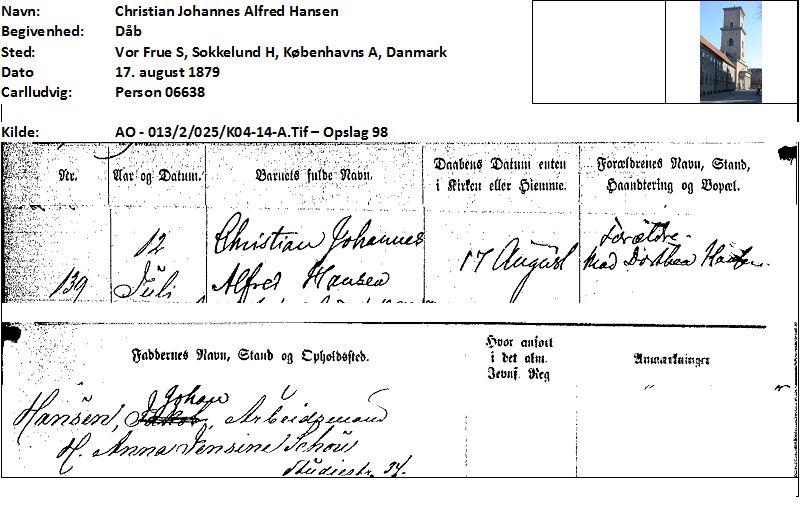 Navn: Christian Johannes Alfred Hansen
Begivenhed: Dåb
Sted: Vor Frue S, Sokkelund H, Københavns A, Danmark
Dato 17. august 1879
Carlludvig: Person 06638
Kilde: AO - 013/2/025/K04-14-A.Tif – Opslag 98
Nr. Aar og Datum. Barnets fulde Navn. Daabens Datum enten i Kirken eller Hiemme. Forældrenes Navn, Stand, Haandtering og Bopæl.
139 12 Juli Christian Johannes Alfred Hansen 17 August Forældre. Mad Dorthea
Faddernes Navn, Stand og Opholdssted. Hvor anført i det alm. Jevnf. Reg Anmærkninger
Johan
Hansen, Jakob, Arbeidsmand
H. Anna Jensine Schou
Studiestr. 34.